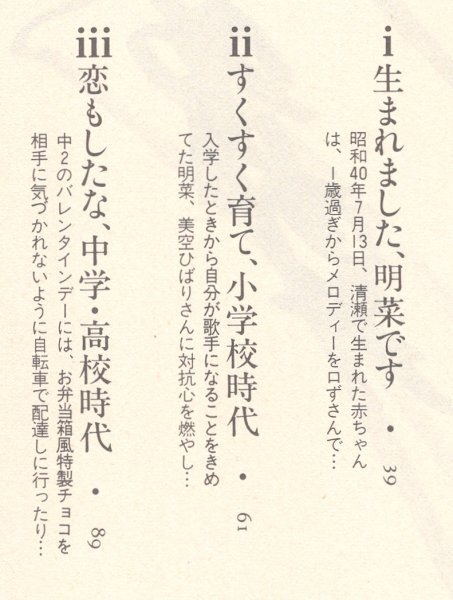 i 生まれました、明菜です ・ 39
昭和40年7月13日、清瀬で生まれた赤ちゃん
は、1歳過ぎからメロディーを口ずさんで…
ii すくすく育て、小学校時代 ・ 61
入学したときから自分が歌手になることをきめ
てた明菜、美空ひばりさんに対抗心を燃やし…
iii 恋もしたな、中学・高校時代 ・ 89
中2のバレンタインデーには、お弁当箱風特製チョコを
相手に気づかれないように自転車で配達しに行ったり…